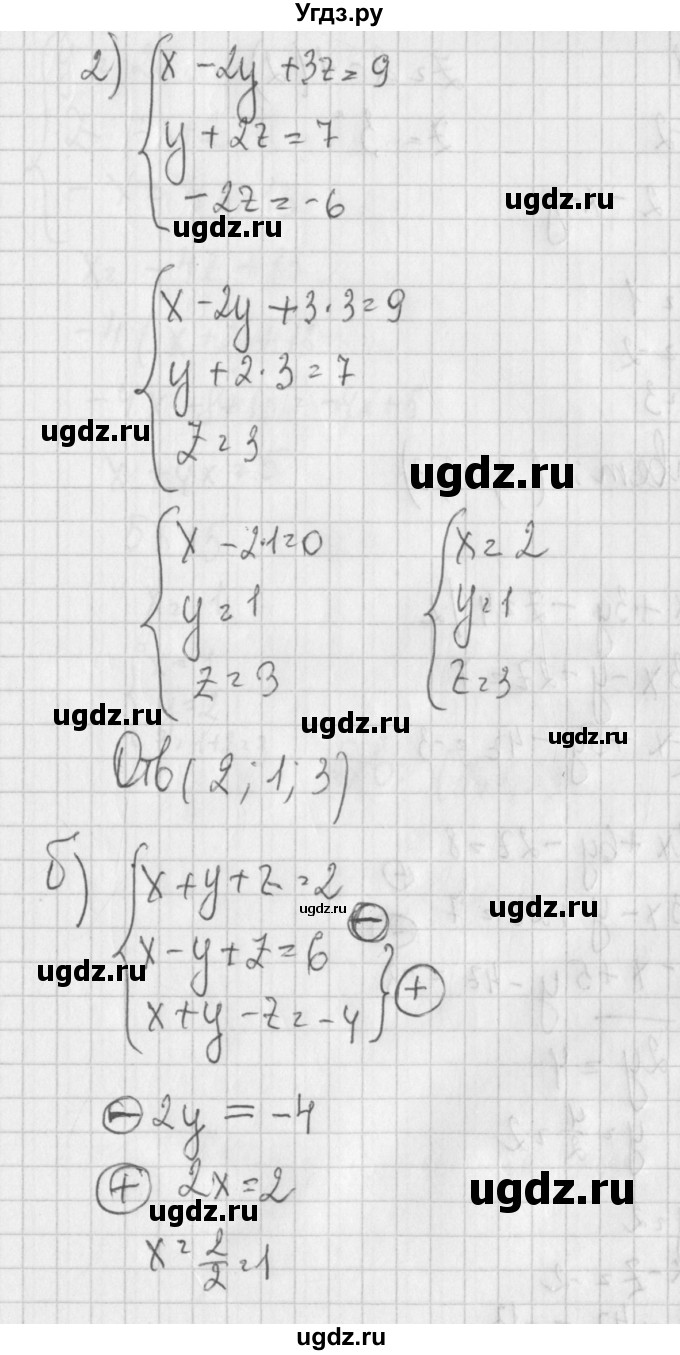 Угдз.ру
2) x - 2y + 3z = 9
y + 2z = 7
- 2z = - 6
ugdz.ru
ugdz.ru
x - 2y + 3 · 3 = 9
y + 2 · 3 = 7
ugdz.ru
z = 3
ugdz.ru
x - 2·1 = 0 x = 2
y = 1 y = 1
z = 3 z = 3
ugdz.ru ugdz.ru ugdz.ru
Отв (2; 1; 3)
б) x + y + z = 2
ugdz.ru ugdz.ru
-
x - y + z = 6
ugdz.ru
+
x + y - z = -4
- 2y = -4
+ 2x = 2
ugdz.ru ugdz.ru
x = 2/2 = 1
ugdz.ru